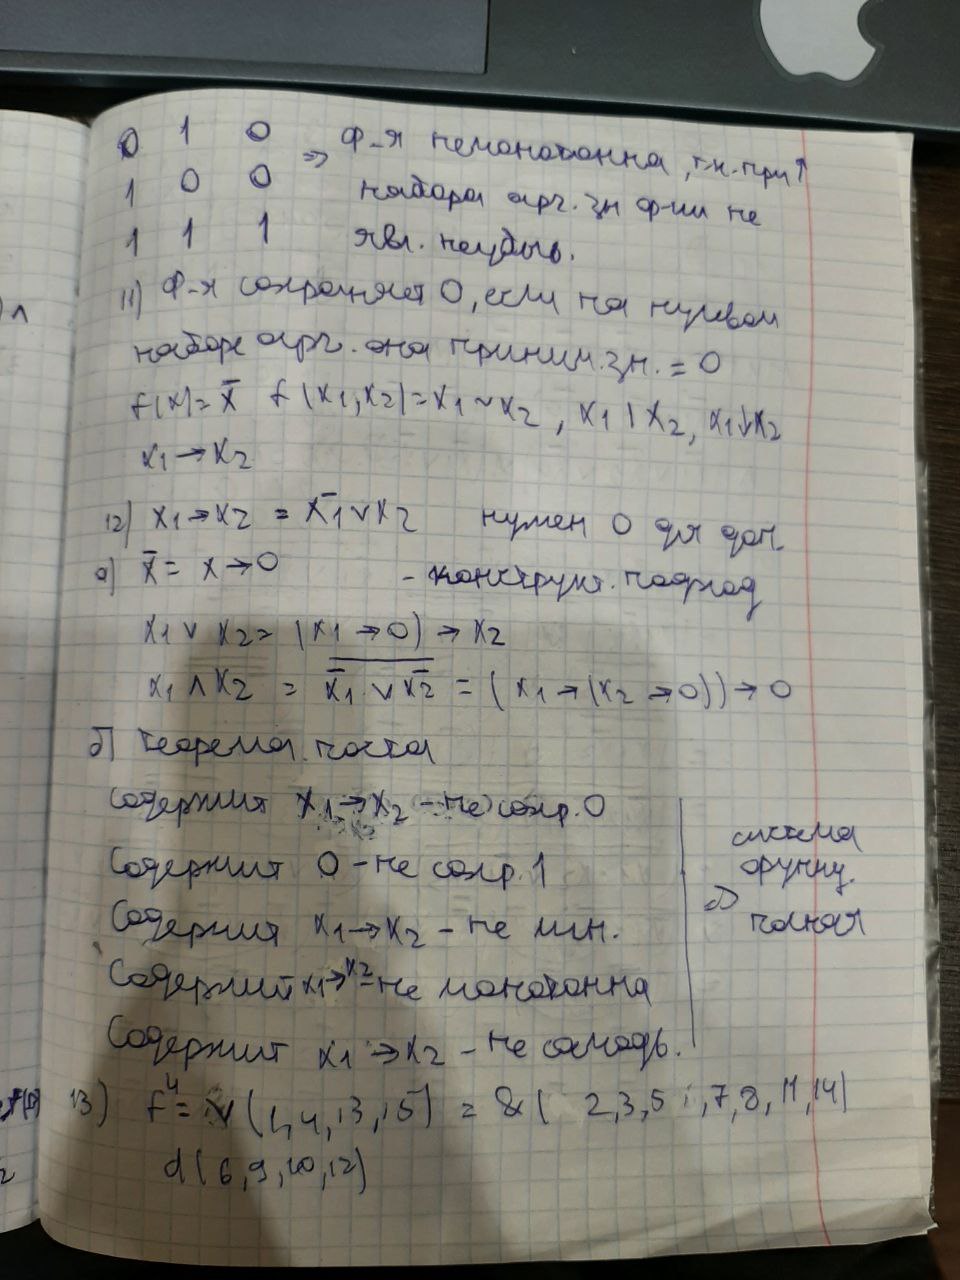 0 1 0 => ф-я немонотонна, т.к. при ↑
1 0 0 набора арг. зн ф-ии не
1 1 1 явл. неубыв.
11) Ф-я сохраняет 0, если на нулевом
наборе арг. она приним. зн. = 0
f(x)= x̄ f(x1,x2)=x1~x2, x1|x2, x1↓x2
x1→x2
12) x1→x2 = x̄1 v x2 нужен 0 для доп.
а) x̄ = x→0 - конструкт. подход
x1 v x2 = (x1→0)→x2
x1 ∧ x2 = \overline{x̄1 v x̄2} = (x1→(x2→0))→0
б) теорема поста
содержит x1→x2 - не сохр. 0
Содержит 0 - не сохр. 1
Содержит x1→x2 - не лин.
Содержит x1→x2 - не монотонна
Содержит x1→x2 - не самодв.
=> система
функц.
полная
13) f⁴ = v (1,4,13,15) = &( 2,3,5,7,8,11,14)
d(6,9,10,12)